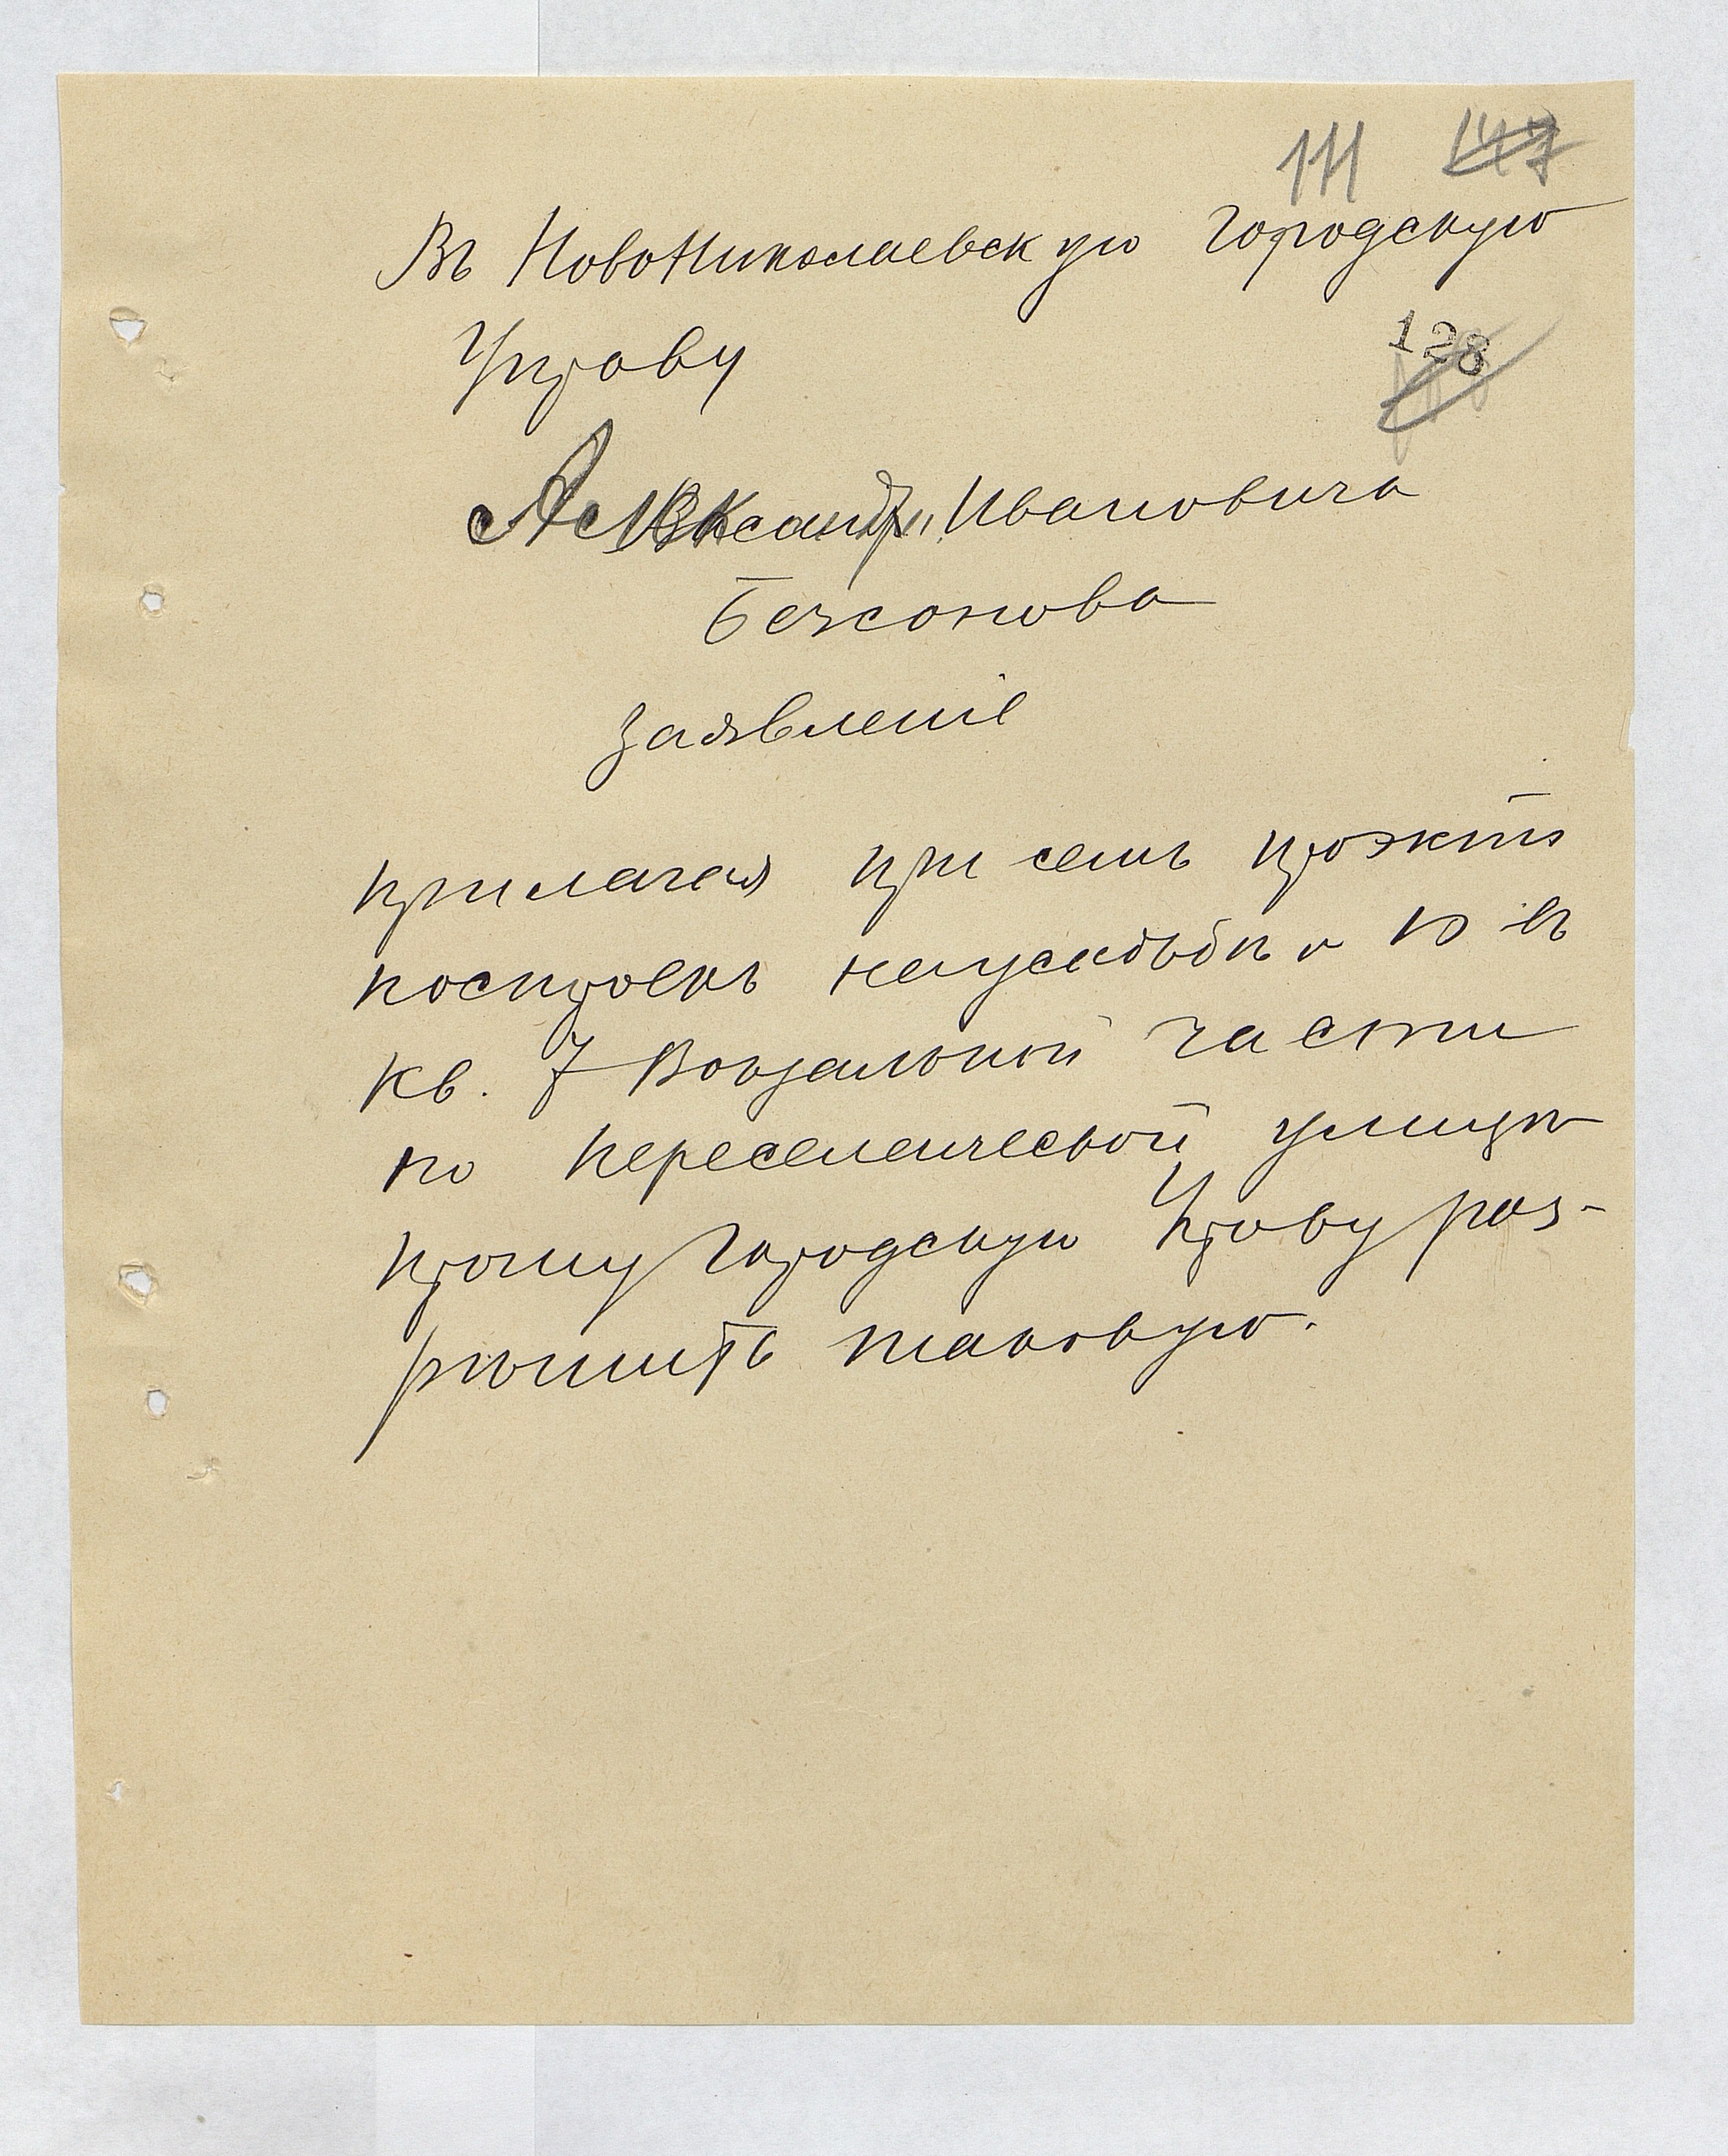 111 147
Въ Новониколаевскую Городскую
128
Управу
Александр Ивановича
Безсонова
Заявленіе
прилагая при семъ проэктъ
построекъ на усадьбы 10 въ
кв. 7 Вокзальной части
по Переселенческой улицы
прошу Городскую Управу раз-
рѣшить таковую.